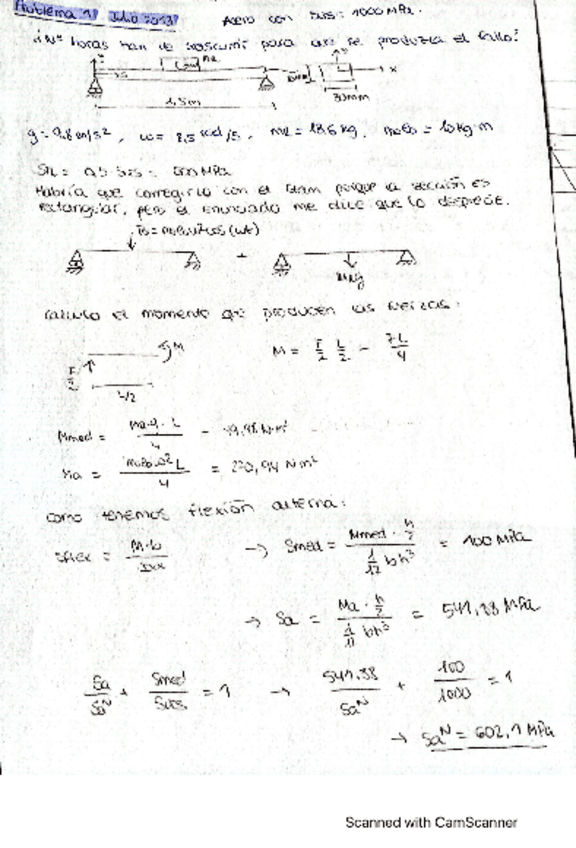 Problema 1) Julio 2013
Acero con Suts = 1000 MPa.
¿Nº horas han de transcurrir para que se produzca el fallo?
1,5m
30mm
x
g = 9,8 m/s², ω = 8,5 rad/s, m2 = 13,6 kg, = 10 kg·m
= 0,5 Suts = 500 MPa
Habría que corregirlo con el porque la sección es
rectangular, pero el enunciado me dice que lo desprecie.
(ωt)
+
Calculo el momento que producen las fuerzas:
M
F/2
L/2
M = F/2 L/2 = FL/4
Mmed = L/4 =
Ma = L/4 = Nm²
Como tenemos flexión alterna:
Sflex = M·b/Ixx → Smed = Mmed · h/2 / 1/12 bh³ = 100 MPa
→ Sa = Ma · h/2 / 1/12 bh³ = MPa
Sa/Sa^N + Smed/Suts = 1 → 541,88/Sa^N + 100/1000 = 1
→ Sa^N = 602,1 MPa
Scanned with CamScanner